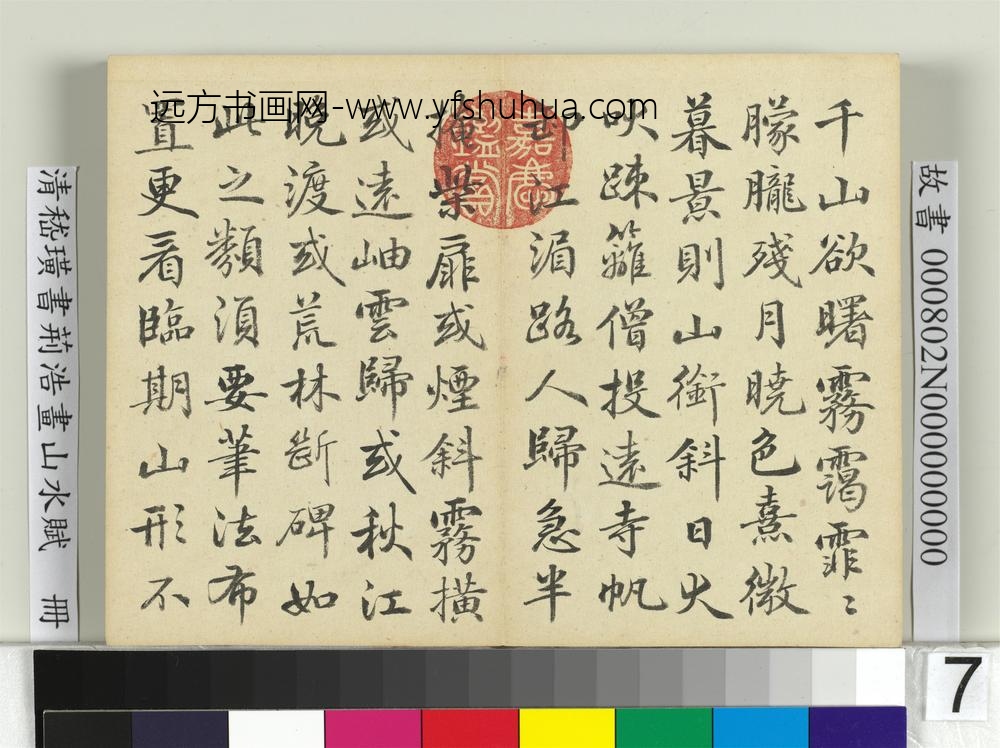 远方书画网-www.yfshuhua.com
千山欲曙霧靄霏〻
朦朧殘月曉色熹微
暮景則山銜斜日犬
吠疎籬僧投遠寺帆
卸江湄路人歸急半
掩柴扉或煙斜霧橫
或遠岫雲歸或秋江
晚渡或荒林斷碑如
此之類須要筆法布
置更看臨期山形不
嘉慶鑑賞
故書 000802N000000000
清嵇璜書荊浩畫山水賦 冊
7